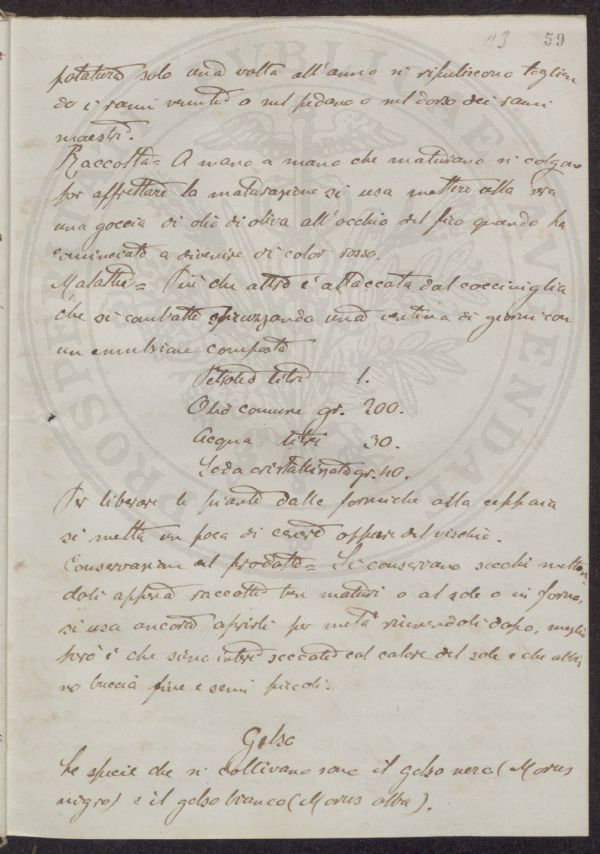 113 59
potatura solo una volta all'anno si ripuliscono toglien
do i rami venuti o sul pedano o sul dorso dei rami
maestri.
Raccolta = A mano a mano che maturano si colgono
per affrettare la maturazione si usa mettere alla sera
una goccia di olio di oliva all'occhio del fico quando ha
cominciato a divenire di color rosso.
Malattie = Più che altro è attaccata dal cocciniglia
che si combatte spruzzando una ventina di giorni con
un emulsione composta
Petrolio litri 1.
Olio comune gr. 200.
Acqua litri 30.
Soda cristallizzata gr. 40.
Per liberare le piante dalle formiche alla ceppaia
si metta un poca di cenere oppure del vischio.
Conservazione del prodotto = Si conservano secchi metten
doli appena raccolti ben maturi o al sole o in forno,
si usa ancora aprirli per metà riunendoli dopo, meglio
però è che siano interi seccati col calore del sole e che abbia
no buccia fine e semi piccoli.
Gelso
Le specie che si coltivano sono il gelso nero (Morus
nigra) e il gelso bianco (Morus alba).
PUBLICAE AVVENDAE PROSPERITATI